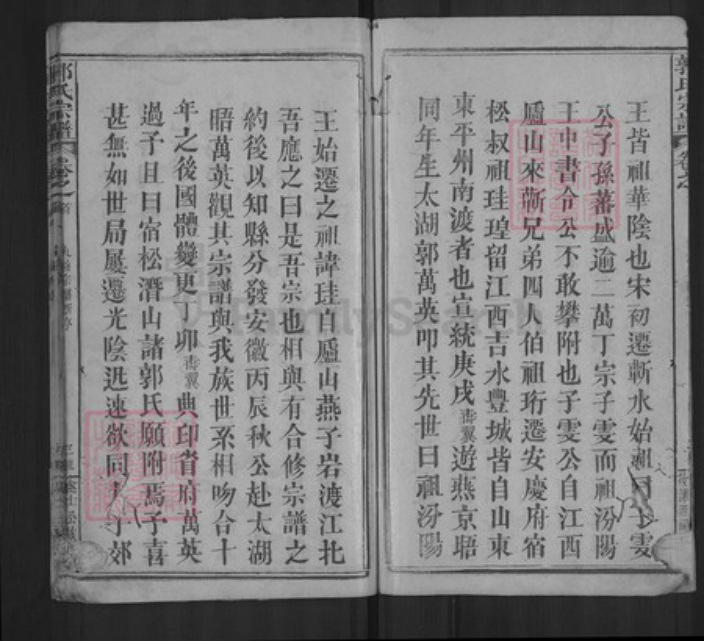 郭氏宗譜
王皆祖華陰也宋初遷蘄水始祖曰子雯
公子孫蕃盛逾二萬丁宗子雯而祖汾陽
王中書令公不敢攀附也子雯公自江西
廬山來蘄兄弟四人伯祖珩遷安慶府宿
松叔祖珪瑝留江西吉水豐城皆自山東
東平州南渡者也宣統庚戌壽翼遊燕京晤
同年生太湖郭萬英叩其先世曰祖汾陽
王始遷之祖諱珪自廬山燕子岩渡江北
吾應之曰是吾宗也相與有合修宗譜之
約後以知縣分發安徽丙辰秋公赴太湖
晤萬英觀其宗譜與我族世系相吻合十
年之後國體變更丁卯壽翼典印省府萬英
過予且曰宿松潛山諸郭氏願附焉予喜
甚無如世局屢遷光陰迅速欲同 郊
郭氏宗譜 卷之首
FamilySearch